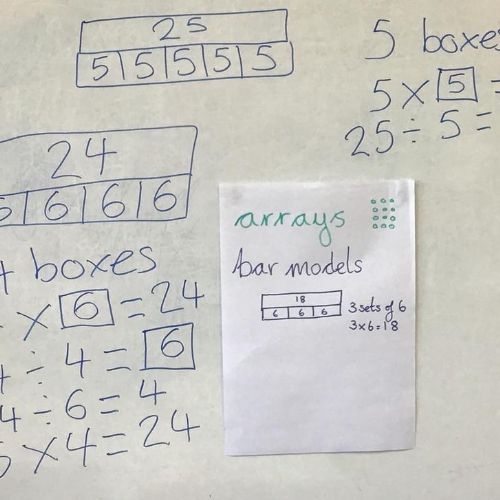 25
5 5 5 5 5
5 boxes
5 × 5 =
25 ÷ 5 =
24
6 6 6 6
4 boxes
× 6 = 24
4 ÷ 4 = 6
4 ÷ 6 = 4
6 × 4 = 24
arrays
bar models
18
6 6 6
3 sets of 6
3×6=18